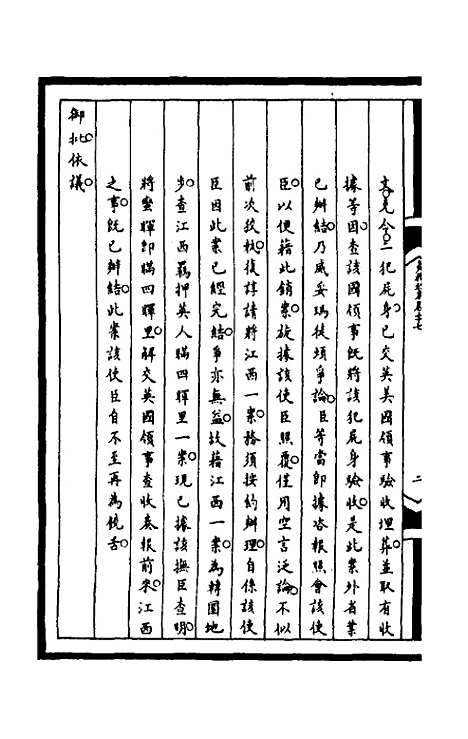 文凭今二犯屍身已交英美國領事驗收埋葬並取有收
據等因查該國領事既將該犯屍身驗收是此案外省業
已辦結乃威妥瑪徒煩爭論臣等當即據咨報照會該使
臣以便藉此銷案旋據該使臣照覆僅用空言泛論不似
前次狡執復諄請將江西一案務須按約辦理自係該使
臣因此案已經完結爭亦無益故藉江西一案為轉圜地
步查江西羈押英人瞞四暉里一案現已據該撫臣查明
將蠻暉即瞞四暉里解交英國領事查收奏報前來江西
之事既已辦結此案該使臣自不至再為饒舌
御批依議
二